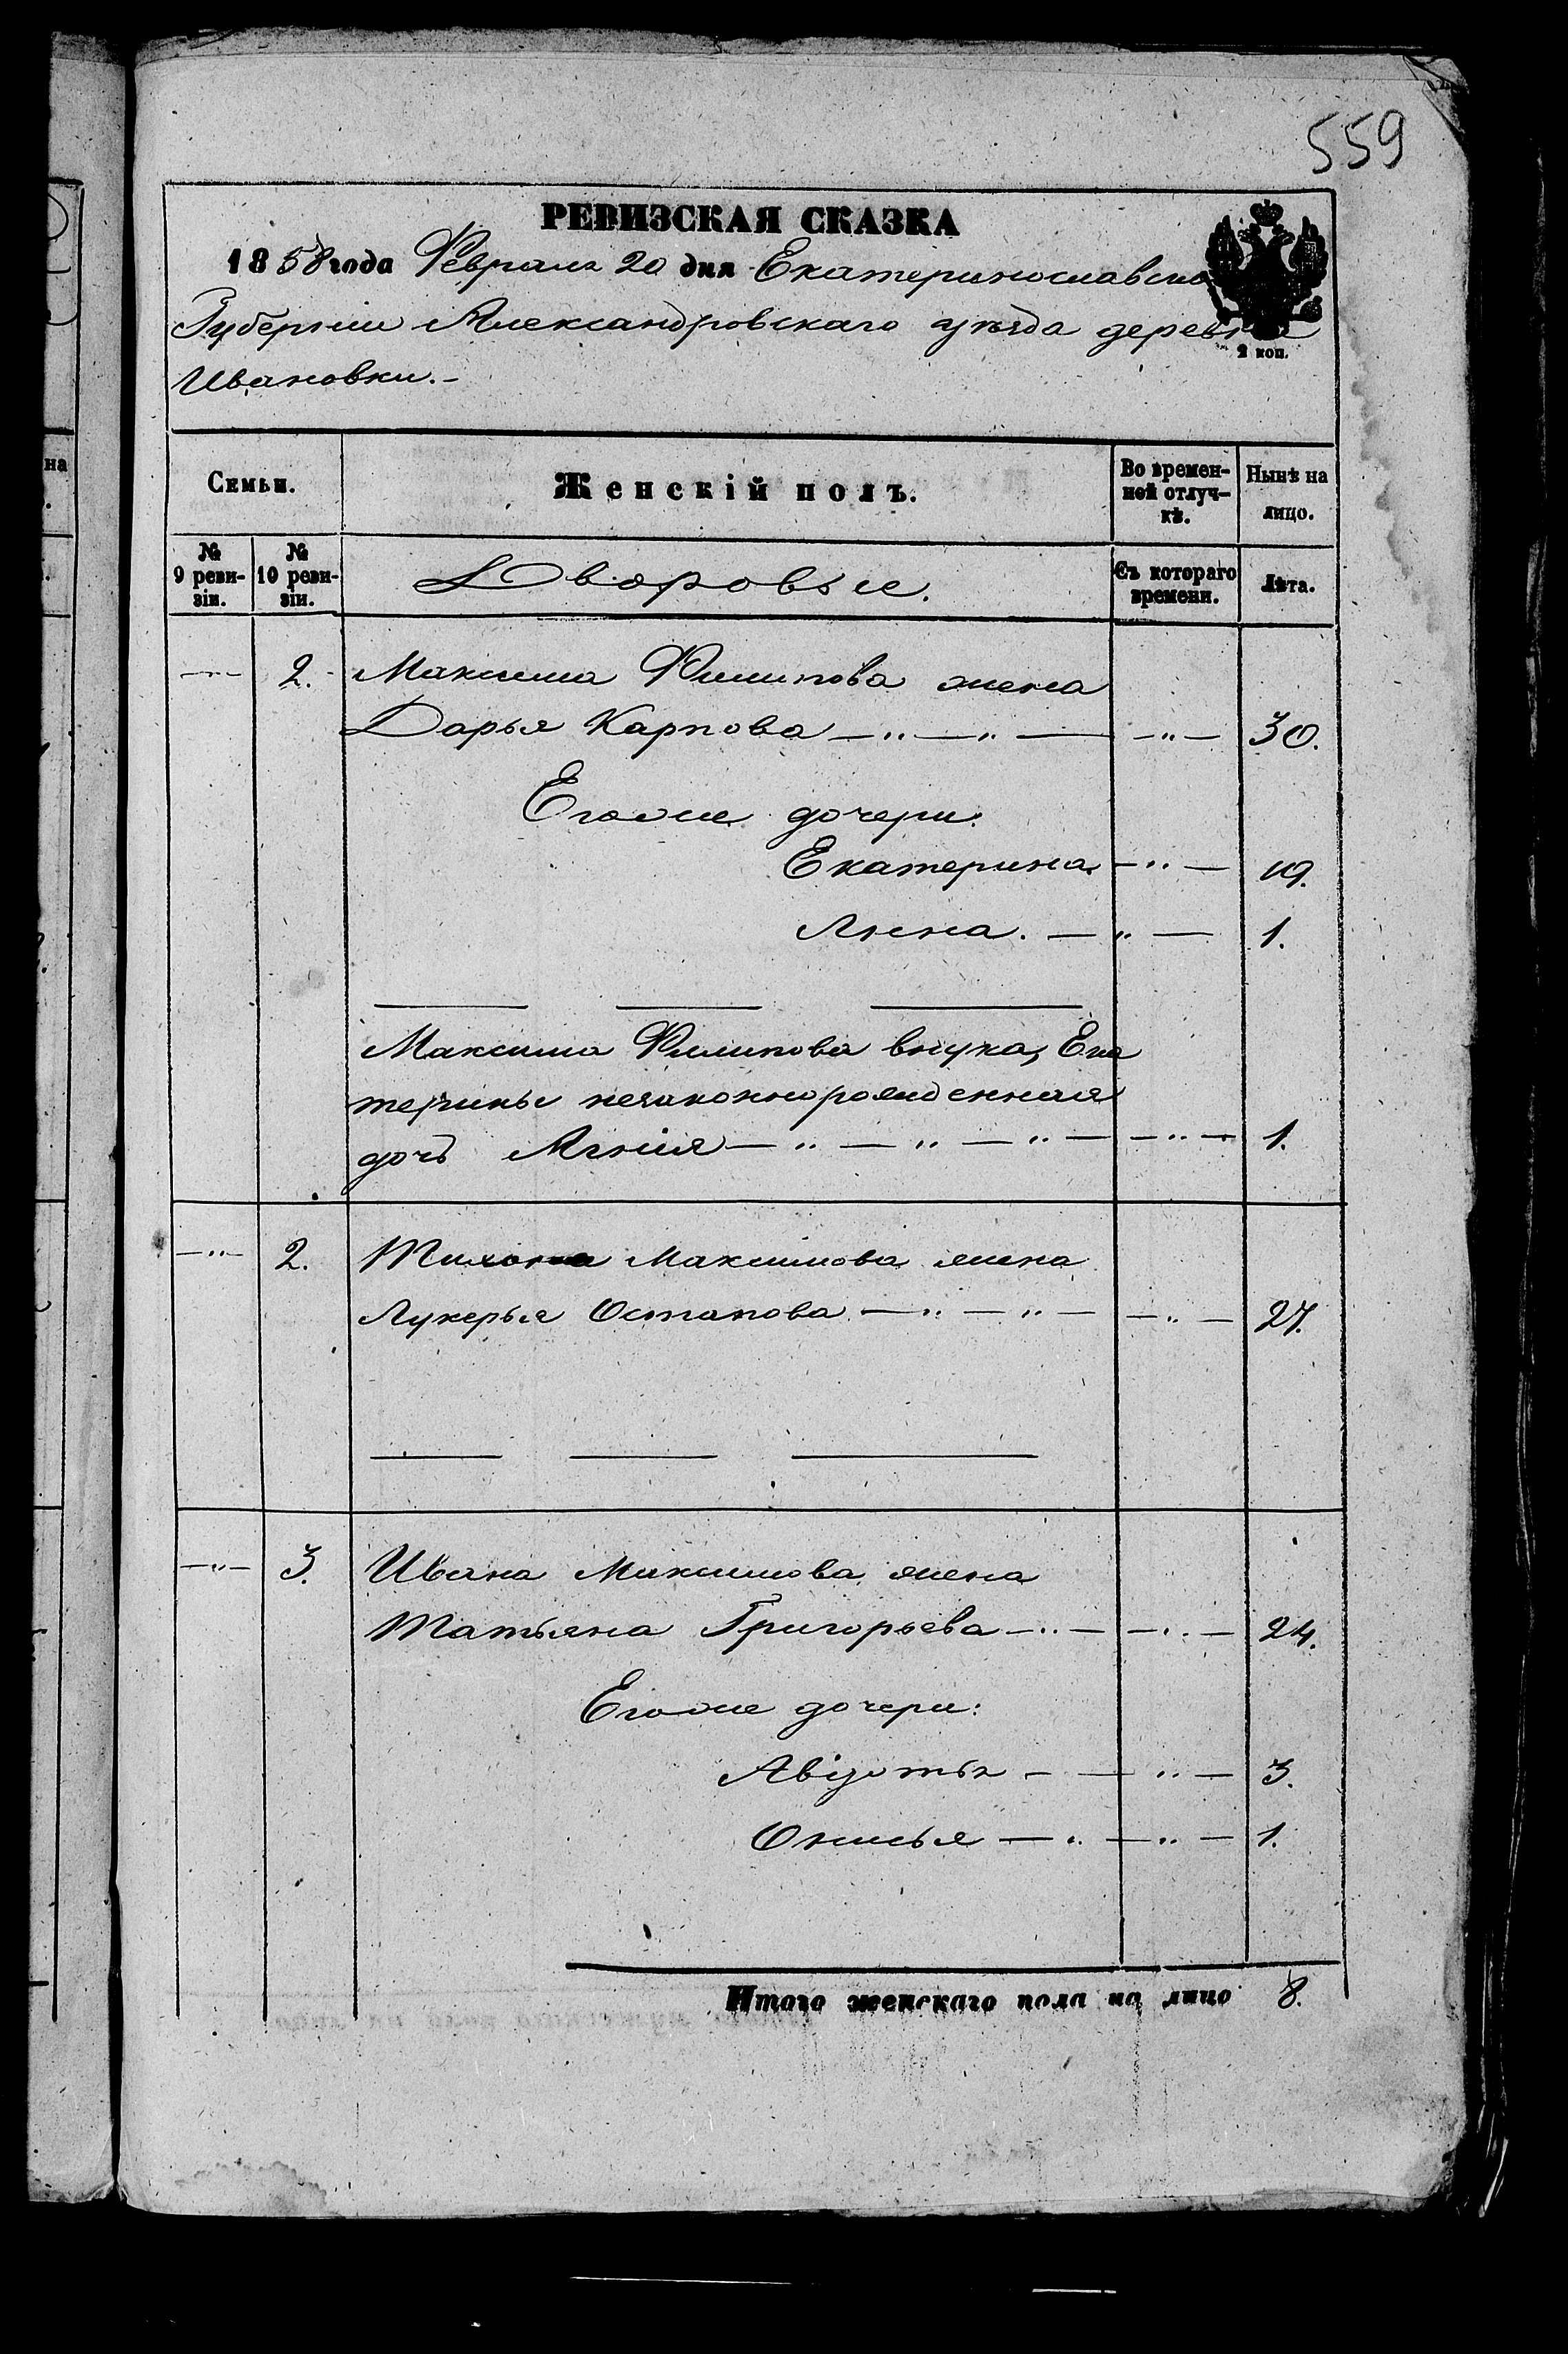 559
РЕВИЗСКАЯ СКАЗКА
1858 года Февраля 20 дня Екатеринославской
Губерніи Александровскаго уѣзда деревни
Ивановки.-
2 коп.
Семьи.
Женскій полъ.
Во времен-
ной отлуч-
кѣ.
Нынѣ на
лицо.
№
9 реви-
зіи.
№
10 реви-
зіи.
Дворовые.
Съ котораго
времени.
Лѣта.
— 2. Максима Филипова жена
Дарья Карпова —„—„— —„— 30.
Егоже дочери:
Екатерина —„— 19.
Анна. —„— 1.
Максима Филипова внука, Ека
терины незаконнорожденная
дочь Агнія —„—„—„— —„— 1.
—„— 2. Тихона Максимова жена
Лукерья Остапова —„—„— —„— 27.
—„— 3. Ивана Максимова жена
Татьяна Григорьева —„— —„— 24.
Егоже дочери:
Авдотья — —„— 3.
Онисья —„—„— 1.
Итого женскаго пола на лицо 8.
на